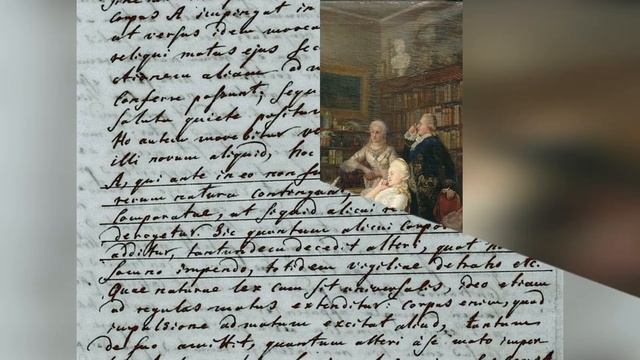 corpus A impingat in
at versus idem movea
reliqui motus ejus sec
ctionem aliam adm
conferre possunt; sequ
soluta quiete positum
Ho autem movebitur ve
illi novum aliquid, hoc
A, qui ante in eo non fu
rerum natura contingunt,
comparatae, ut si quid alicui re
derogetur. Sic quantum alicui corpor
additur, tantundem decedit alteri, quot h
somno impendo, totidem vigiliae detraho etc.
Quae naturae lex cum sit universalis, ideo etiam
ad regulas motus extenditur: corpus enim, quod
impulsione ad motum excitat aliud, tantum
de suo amittit, quantum alteri à se moto imper